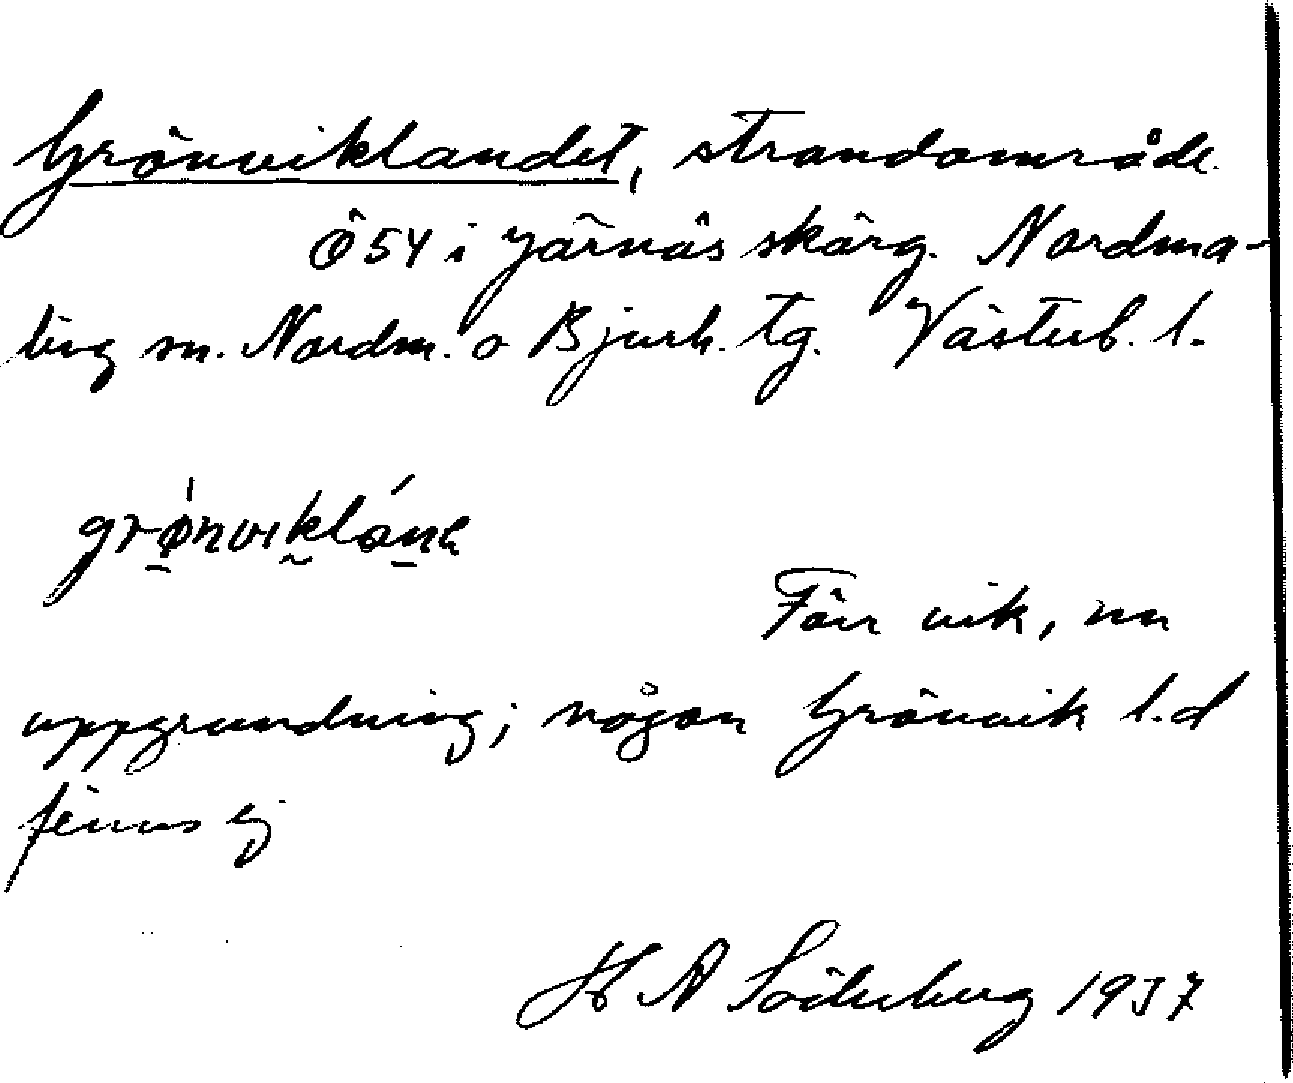 Grönviklandet, strandområde
Ö54 i Järnäs skärg. Nordma-
ling sn. Nordm. o Bjurh. tg. Västerb. l.
grønviklánɐ
Förr vik, nu
uppgrundning; någon Grönvik t.d
finns ej
H A Söderberg 1937